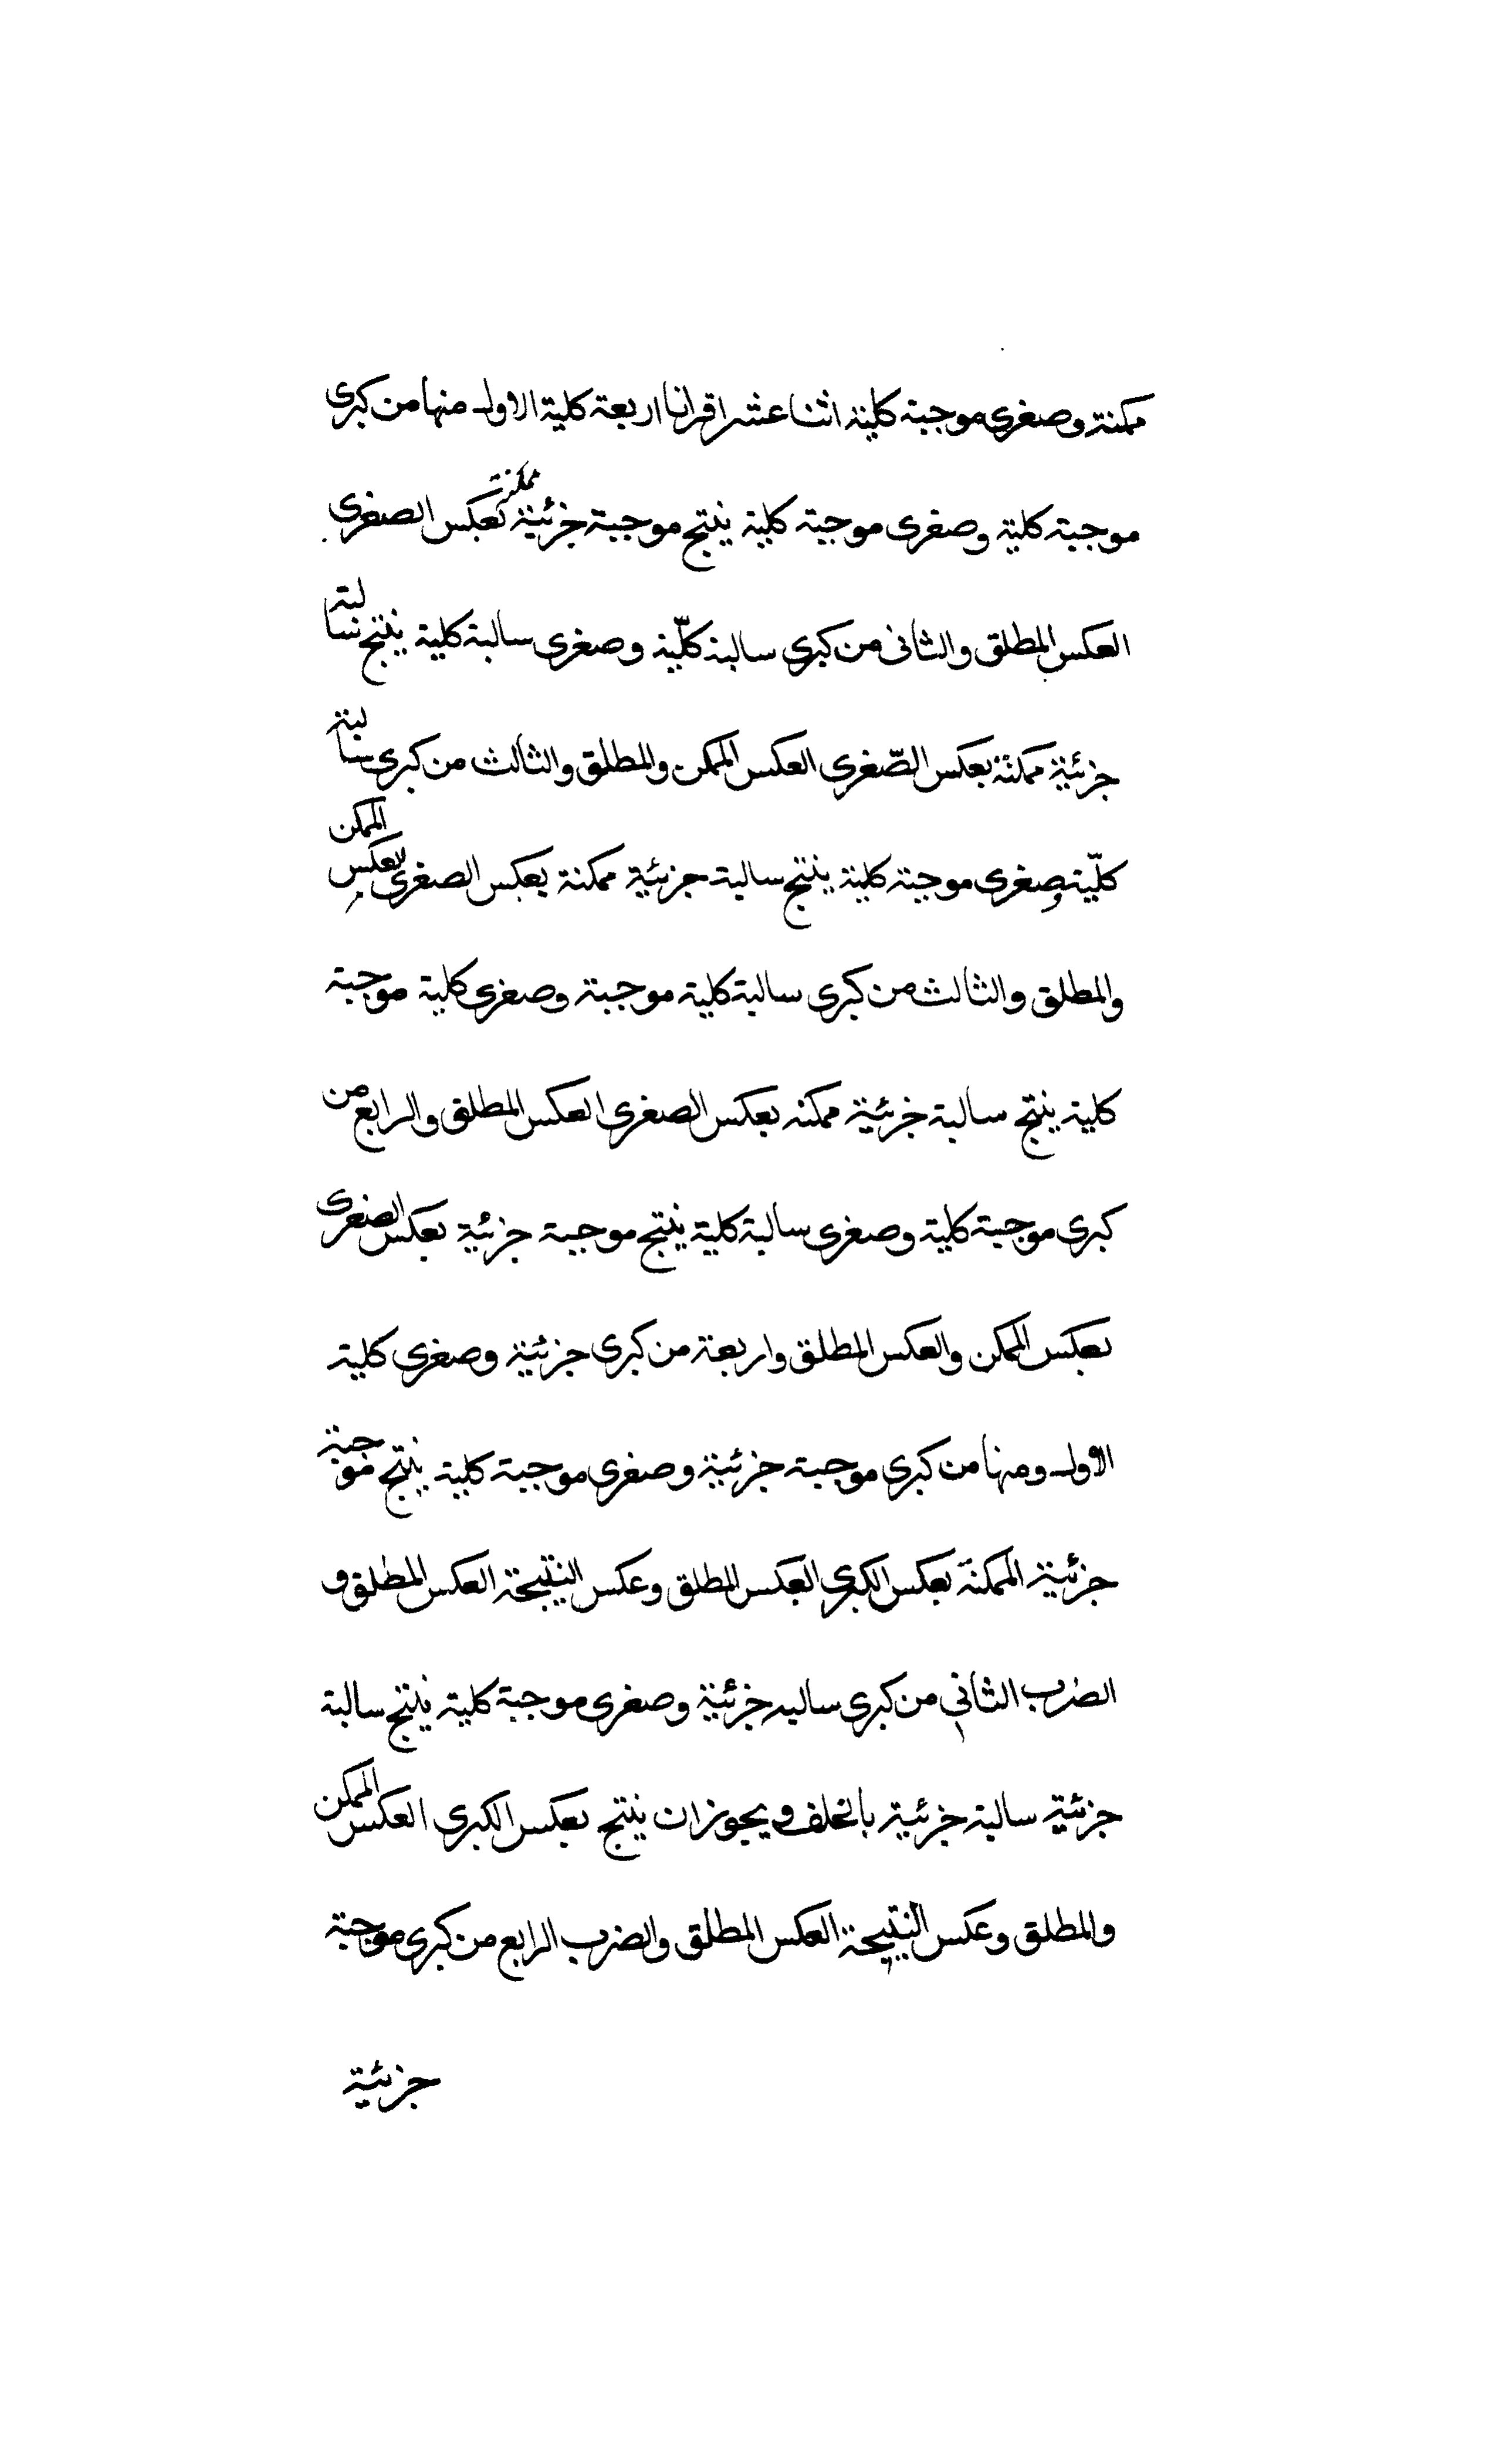 ممكنة وصغرى موجبة كلية اثنا عشر اقرانا اربعة كلية الاول منها من كبرى
موجبة كلية وصغرى موجبة كلية ينتج موجبة جزئية ممكنة بعكس الصغرى
العكس المطلق والثانى من كبرى سالبة كلّية وصغرى سالبة كلية ينتج سالبة
جزئية ممكنة بعكس الصّغرى العكس الممكن والمطلق والثالث من كبرى سالبة
كلّية وصغرى موجبة كلية ينتج سالبة جزئية ممكنة بعكس الصغرى بعكس الممكن
والمطلق والثالث من كبرى سالبة كلية موجبة وصغرى كلية موجبة
كلية ينتج سالبة جزئية ممكنه بعكس الصغرى العكس المطلق والرابع من
كبرى موجبة كلية وصغرى سالبة كلية ينتج موجبة جزئية بعكس الصغرى
بعكس الممكن والعكس المطلق واربعة من كبرى جزئية وصغرى كلية
الاول ومنها من كبرى موجبة جزئية وصغرى موجبة كلية ينتج موجبة
جزئية الممكنة بعكس الكبرى العكس المطلق وعكس النتيجة العكس المطلق و
الضرب الثاني من كبرى سالبه جزئية وصغرى موجبة كلية ينتج سالبة
جزئية سالبة جزئية بالخلف ويجوز ان ينتج بعكس الكبرى العكس الممكن
والمطلق وعكس النتيجة العكس المطلق والضرب الرابع من كبرى موجبة
جزئية